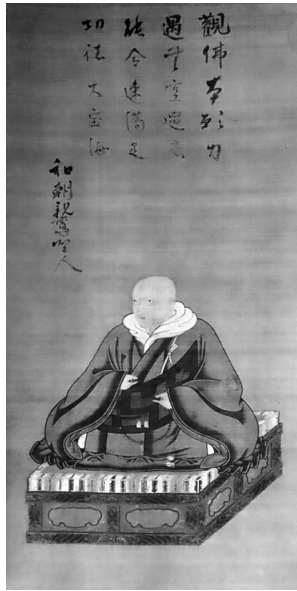 觀佛本願力
遇无空過者
能令速満足
功徳大宝海
和朝親鸞聖人